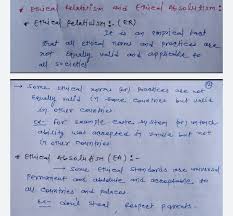 * Ethical Relativism and Ethical Absolutism :
* Ethical Relativism :- (ER)
It is an empirical fact
that all ethical norms and practices are
not equally valid and applicable to
all societies
→ Some ethical norms (or) practices are not
equally valid in some countries but valid
in other countries
ex:- for example caste system (or) untouch
ability was accepted in but not
in other countries
* Ethical Absolutism (EA) :-
→ Some ethical standards are universal
Permanent and absolute and acceptable to
all countries and places
ex:- don't steal, Respect parents.